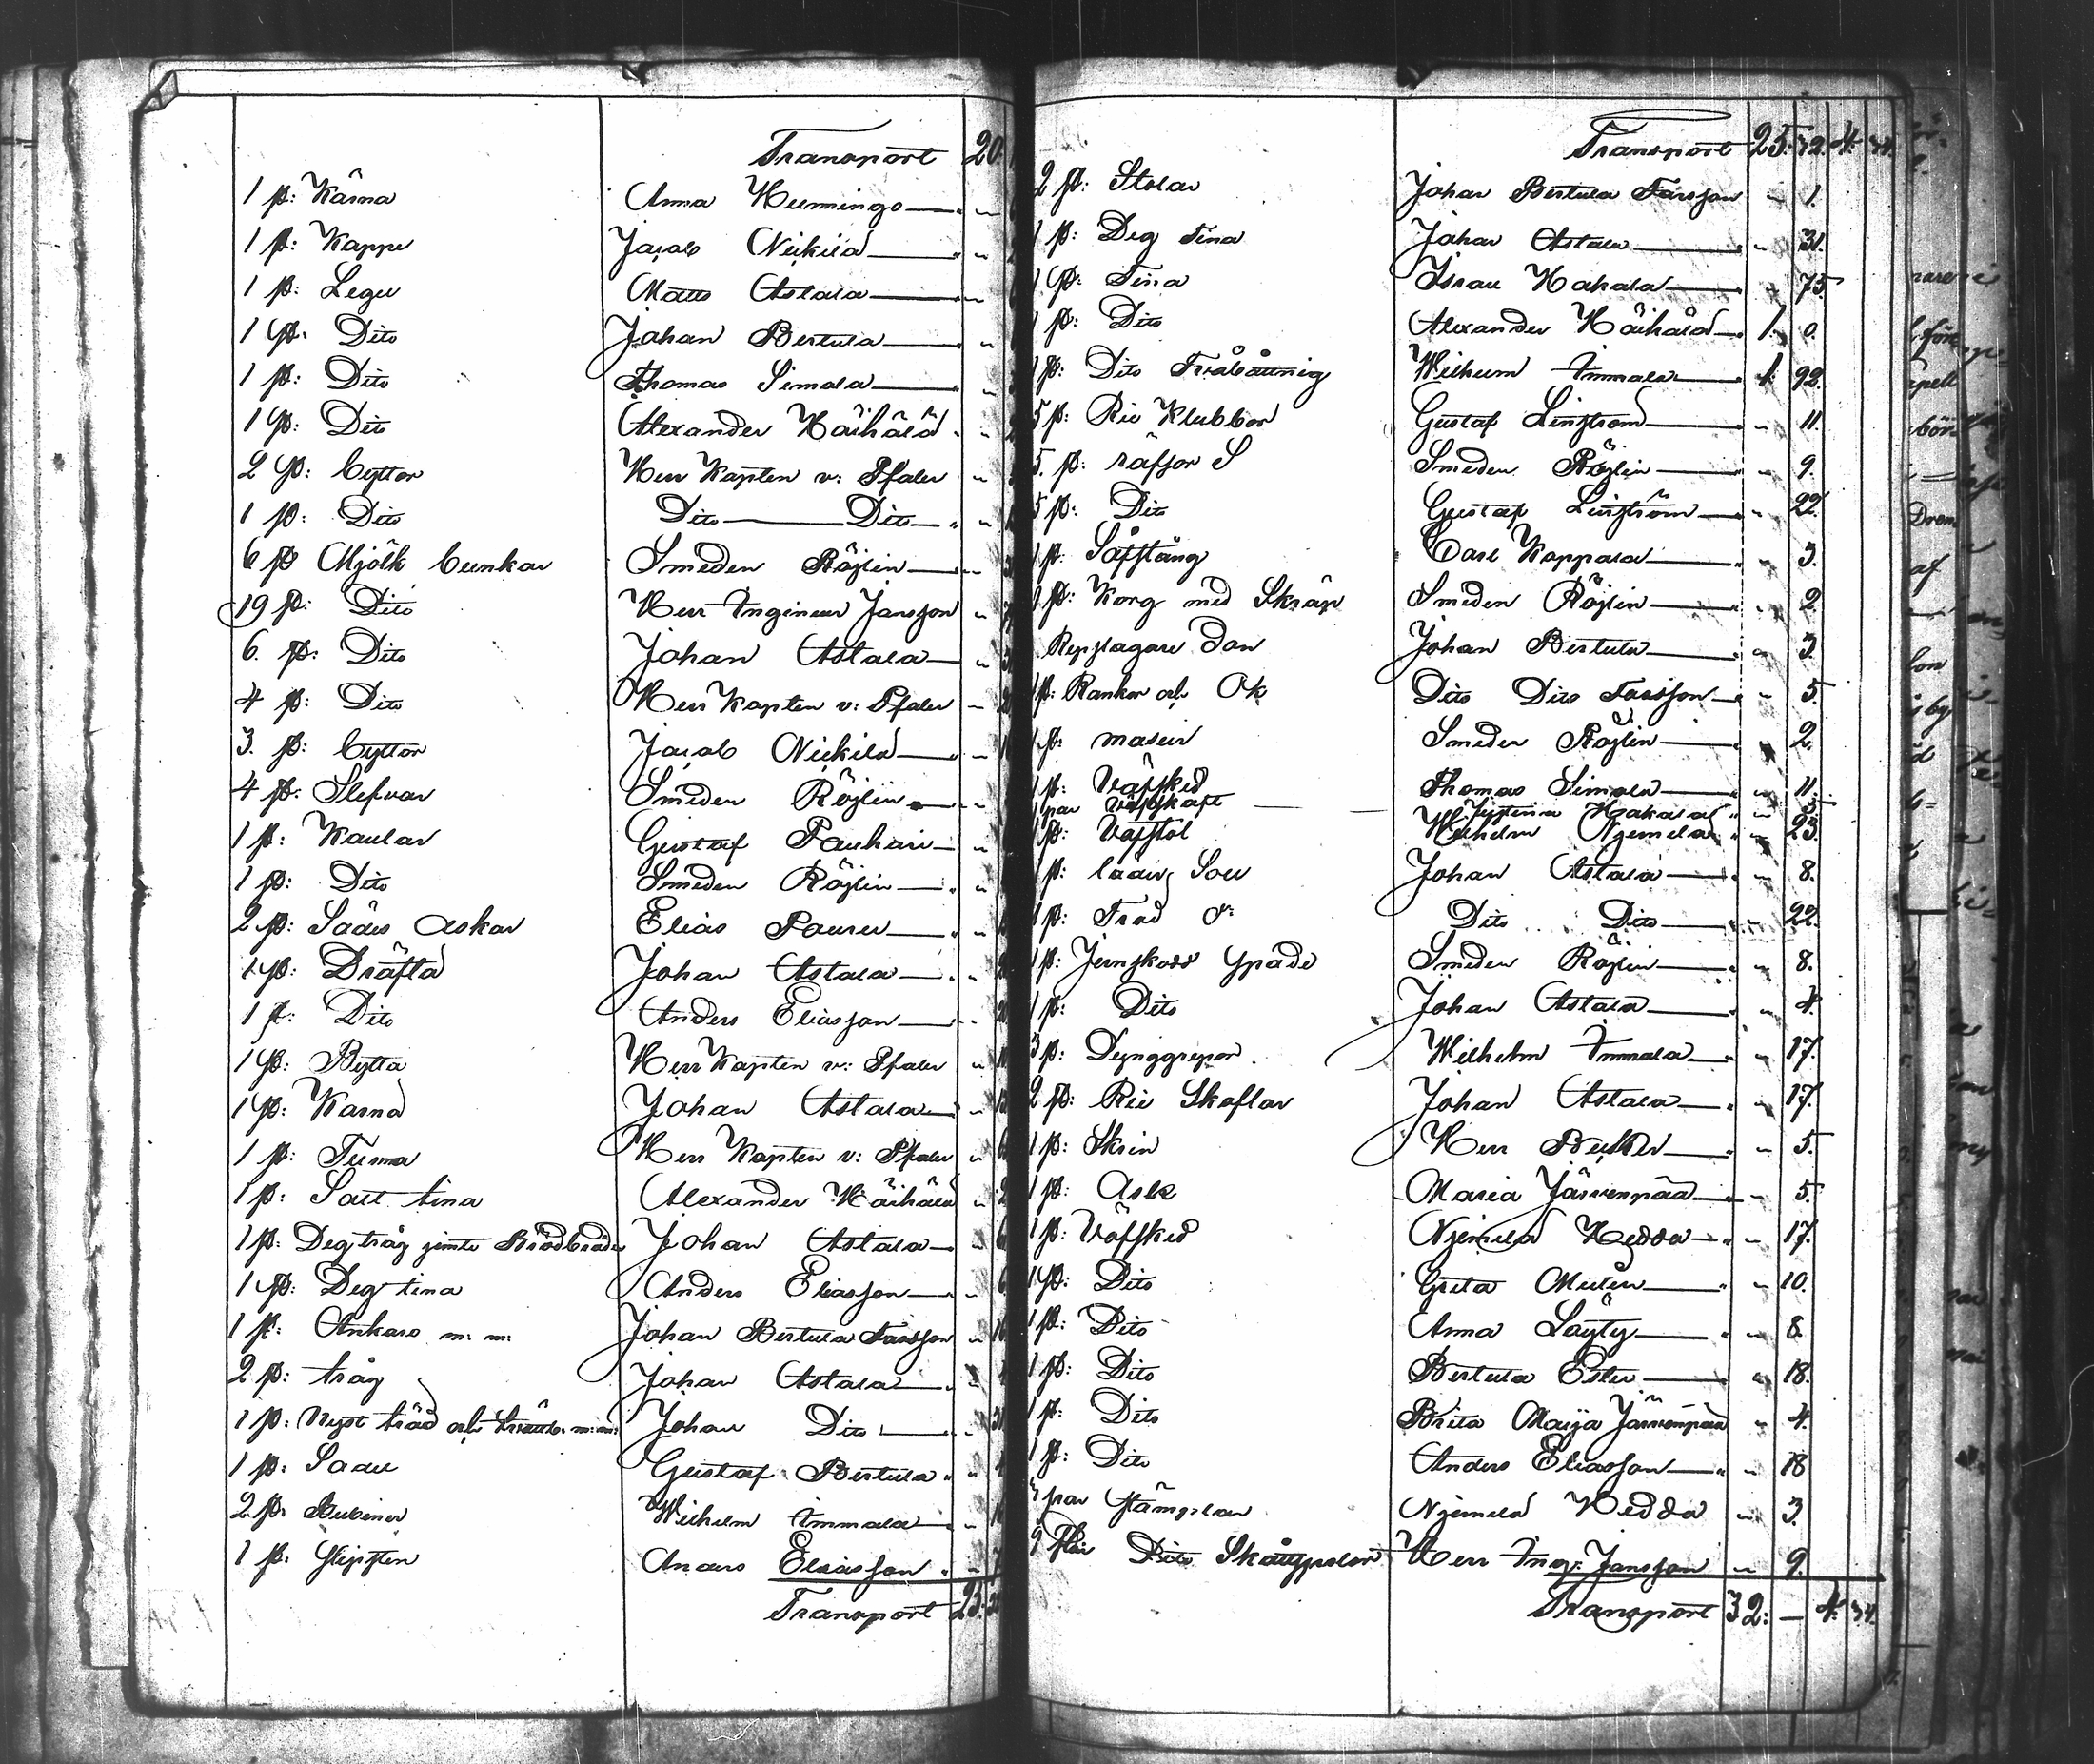 Transport 20.
1 st: Kärna Anna Hemmingo — "
1 st: Kappe Jacob Nickilä — "
1 st: Legel Matts Astala — "
1 st: Dito Johan Bertula — "
1 st: Dito Thomas Simola — "
1 st: Dito Alexander Häihälä "
2 st: byttor Herr Kapten v: Pfaler "
1 st: Dito Dito — Dito — "
6 st Mjölk bunkar Smeden Röjlin — "
19 st: Dito Herr Ingineur Jansson "
6. st: Dito Johan Astala — "
4 st: Dito Herr Kapten v: Pfaler "
3. st: byttor Jacob Nickilä — "
4 st: Slefvar Smeden Röjlin — "
1 st: Kaular Gustaf Pauhari — "
1 st: Dito Smeden Röjlin — "
2 st: Sädes askar Elias Paurer — "
1 st: Dräfla Johan Astala — "
1 st: Dito Anders Eliasson — "
1 st: Bytta Herr Kapten v: Pfaler "
1 st: Kärna Johan Astala — "
1 st: Tunna Herr Kapten v: Pfaler "
1 st: Salt tina Alexander Häihälä "
1 st: Degtråg jemte Brödbräde Johan Astala — "
1 st: Deg tina Anders Eliasson — "
1 st: Ankare m: m: Johan Bertula Farsson "
2 st: tråg Johan Astala — "
1 st: Nyst träd och m: m: Johan Dito — "
1 st: Sadel Gustaf Bertula "
2 st: Wilhelm Immala — "
1 st: Slipsten Anders Eliasson "
Transport 25.
Transport 25. 72. 4. 34.
2 st: Stolar Johan Bertula Farsson " 1.
1 st: Deg tina Johan Astala — " 31.
1 st: Tina Israel Hakala — " 75.
1 st: Dito Alexander Häihälä — 1. 0.
1 st: Dito Wilhelm Immala — 1. 92.
5 st: Rie Klubbor Gustaf Linström — " 11.
5. st: räfsor S Smeden Röjlin — " 9.
5 st: Dito Gustaf Linström — " 22.
1 st: Såfstång Carl Kappala — " 3.
1 st: Korg med Skräp Smeden Röjlin — " 2.
Repslagare don Johan Bertula — " 3.
1 st: Rankor och Ok Dito Dito Farsson — " 5.
1 st: Smeden Röjlin — " 2.
1 st: Väfsked Thomas Simola — " 11.
1 par väfskaft — — Justina Hakala " 5.
1 st: Väfstol Wilhelm Njemelä " 25.
1 st: Johan Astala — " 8.
1 st: Dito Dito — " 22.
1 st: Jernskodd spade Smeden Röjlin — " 8.
1 st: Dito Johan Astala — " 4.
3 st: Dynggrepar Wilhelm Immala — " 17.
2 st: Rie Skoflar Johan Astala — " 17.
1 st: Skrin Herr Becker — " 5.
1 st: Ask Maria Järvenpää — " 5.
1 st: Väfsked Njemelä Hedda — " 17.
1 st: Dito Greta — " 10.
1 st: Dito Anna Läyty — " 8.
1 st: Dito Bertula Ester — " 18.
1 st: Dito Brita Maija Järvenpää " 4.
1 st: Dito Anders Eliasson — " 18
3 par stämplar Njemelä Hedda " 3.
9 Dito Herr Ing: Jansson " 9.
Transport 32: — 4. 34.